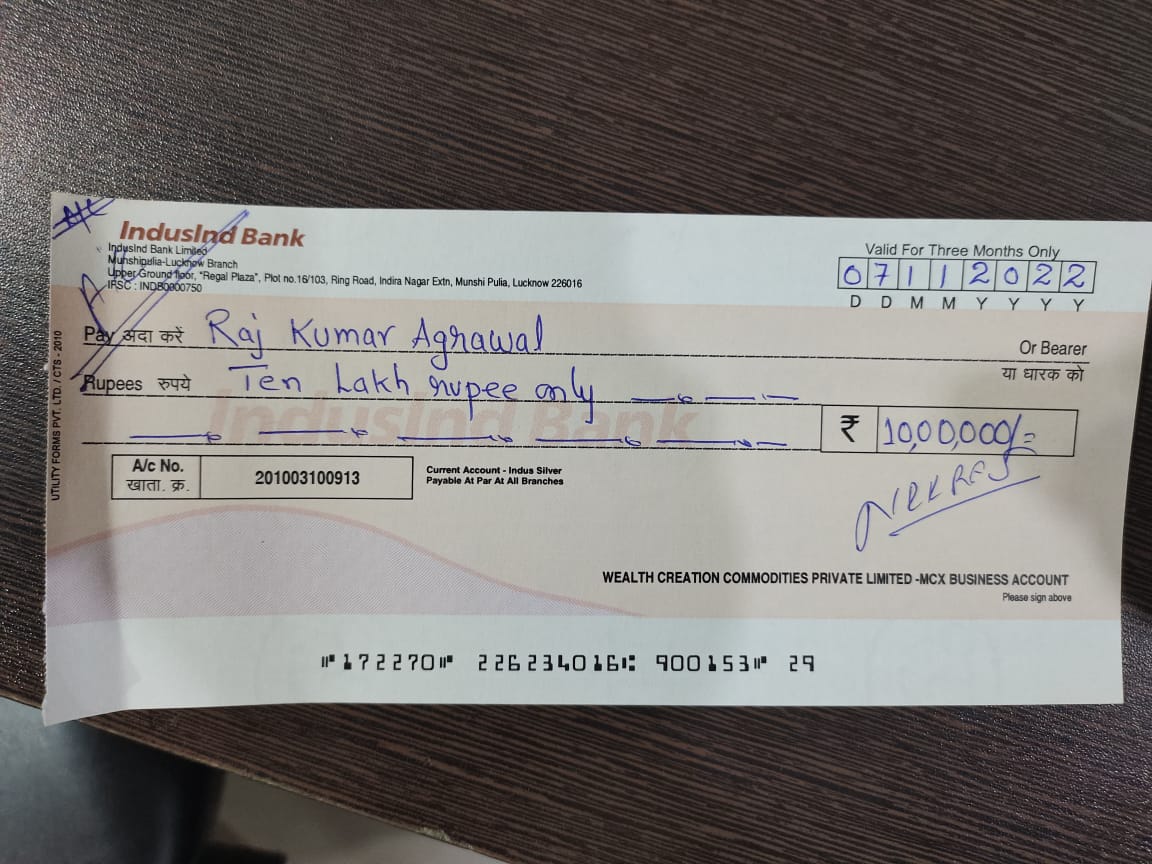 A/c
IndusInd Bank
IndusInd Bank Limited
Munshipulia-Lucknow Branch
Upper Ground floor, "Regal Plaza", Plot no.16/103, Ring Road, Indira Nagar Extn, Munshi Pulia, Lucknow 226016
IFSC : INDB0000750
Valid For Three Months Only
07112022
D D M M Y Y Y Y
Pay अदा करें Raj Kumar Agrawal
Or Bearer
या धारक को
Rupees रुपये Ten Lakh rupee only
IndusInd Bank
₹ 10,00,000/=
A/c No.
खाता. क्र.
201003100913
Current Account - Indus Silver
Payable At Par At All Branches
WEALTH CREATION COMMODITIES PRIVATE LIMITED -MCX BUSINESS ACCOUNT
Please sign above
UTILITY FORMS PVT. LTD. / CTS - 2010
⑈172270⑈ 226234016⑆ 900153⑈ 29